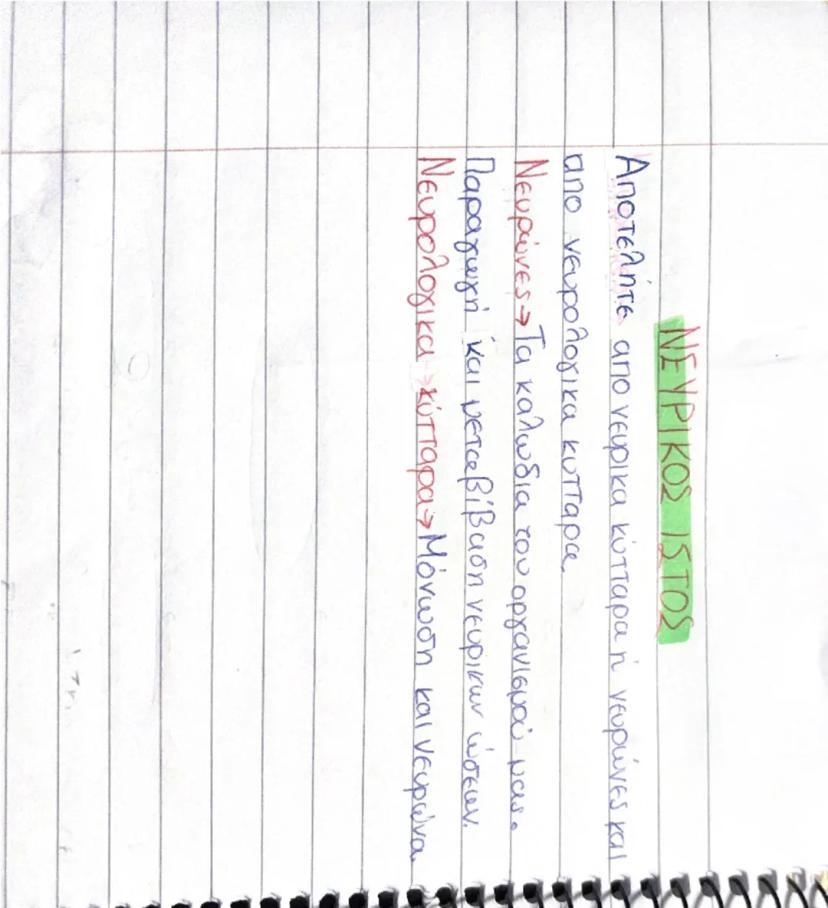 ΝΕΥΡΙΚΟΣ ΙΣΤΟΣ
Αποτελήτε απο νευρικα κύτταρα ή νευρώνες και
απο νευρολογικα κυτταρα.
Νευρώνες → Τα καλωδια του οργανισμού μας.
Παραγωγή και μεταβίβαση νευρικων ώσεων.
Νευρολογικα κύτταρα → Μόνωση και νευρώνα